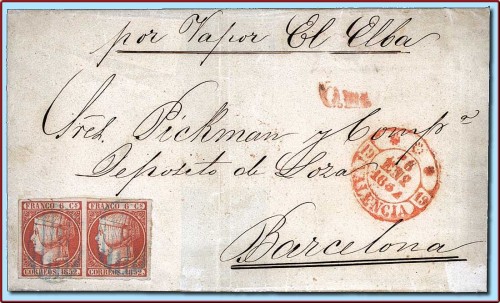 por Vapor El Elba
Sres. Pickman y Compª
Deposito de Loza
Barcelona
VALENCIA
19
19
16
ENE
FRANCO 6 Cs
CORREOS. 1852.
FRANCO 6 Cs
CORREOS. 1852.